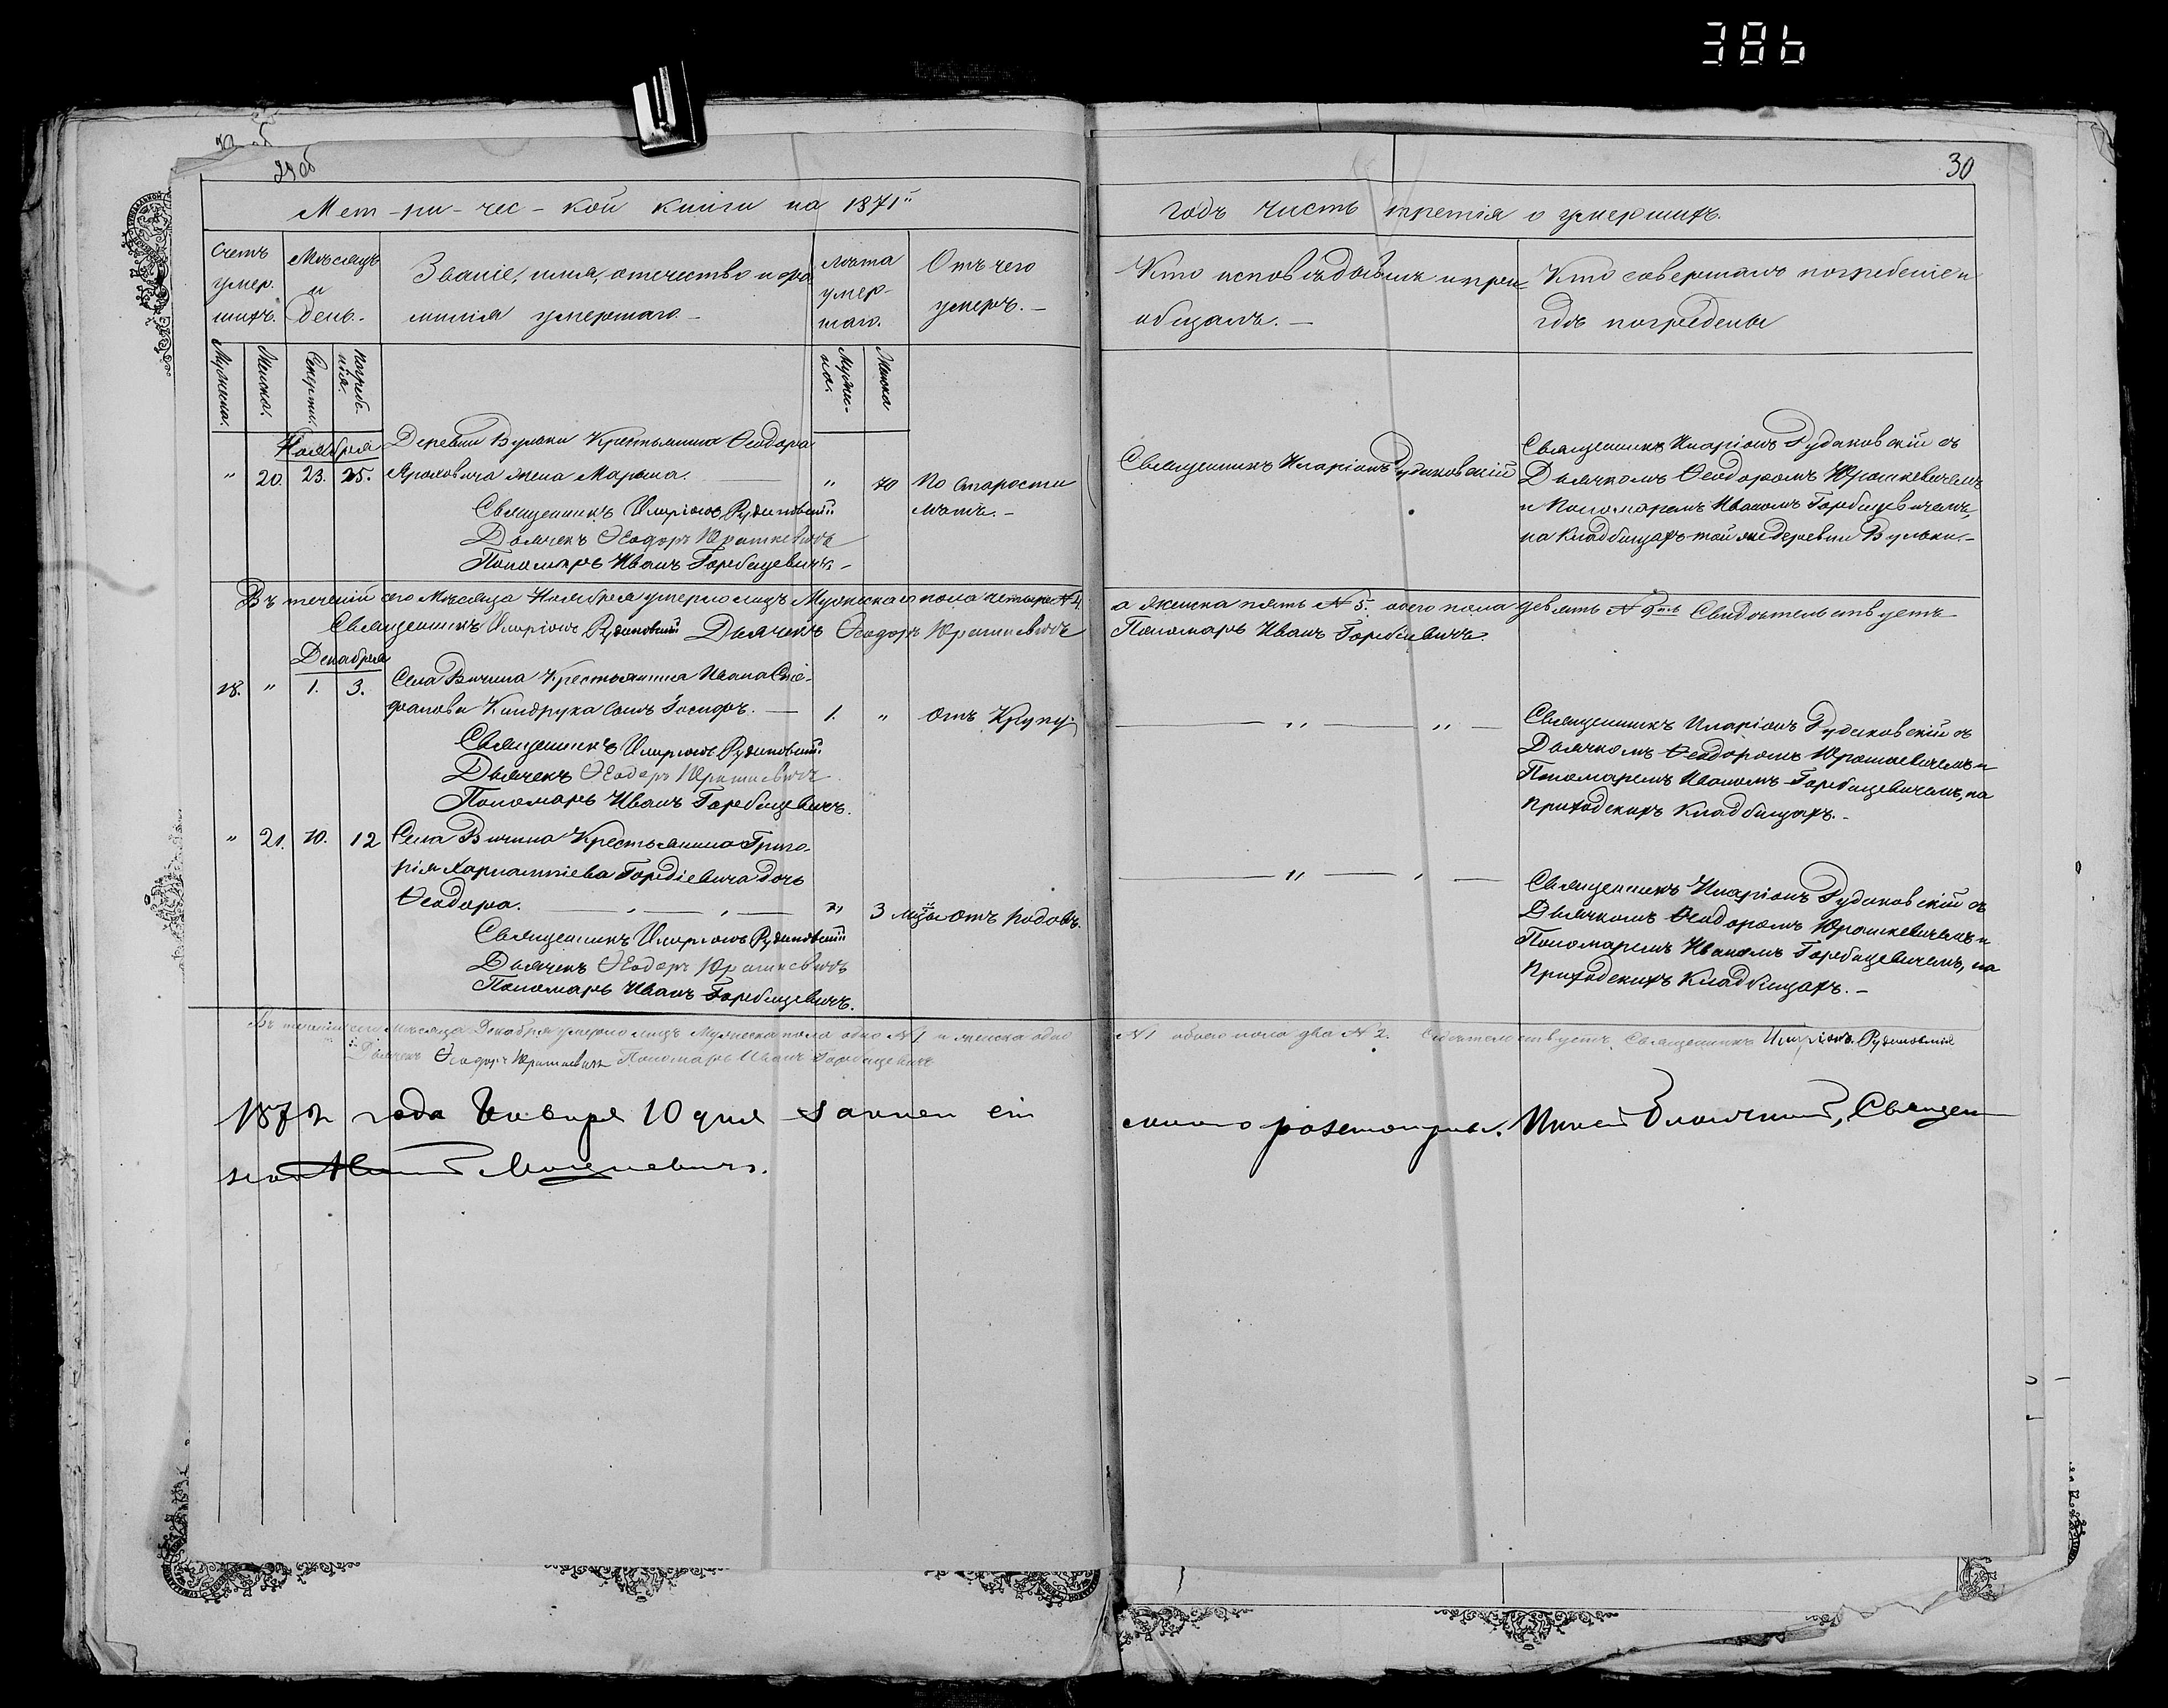 386
29 об
30
Мет-ри-чес-кой книги на 1871й
годъ часть третія о умершихъ.
Счетъ умер. шихъ.
Мѣсяцъ и день.
Званіе, имя, отечество и фа
милія умершаго. —
лѣта умер- шаго.
Отъ чего умеръ. —
Кто исповѣдывалъ и прі-
общалъ. —
Кто совершалъ погребеніе и
гдѣ погребены
Мужеска.
Женска.
Смерти.
Погребе- нія.
Мужес- ка.
Женска
Ноября
Деревни Вульки Крестьянина Ѳеодора
" 20. 23. 25. Яроховича жена Марьяна. — " 70 По старости
лѣтъ. —
Священникъ Иларіонъ Рудаковскій
Дьячекъ Ѳеодоръ Юрашкевичъ
Пономарь Иванъ Горбацевичъ. —
Священникъ Иларіонъ Рудаковскій
Священникъ Иларіонъ Рудаковскій съ
Дьячкомъ Ѳеодоромъ Юрашкевичемъ
и Пономаремъ Иваномъ Горбацевичемъ,
на кладбищахъ той же деревни Вульки. —
Въ теченіи сего Мѣсяца Ноября умерло лицъ Мужескаго пола четыре № 4
а женска пять № 5. обоего пола девять № 9ть Свидѣтельствуетъ
Священникъ Иларіонъ Рудаковскій Дьячекъ Ѳеодоръ Юрашкевичъ
Пономарь Иванъ Горбацевичъ.
Декабря
18. " 1. 3. Села Вичина Крестьянина Ивана Сте-
фанова Кондрука сынъ Іосифъ. — 1. " отъ Крупу.
Священникъ Иларіонъ Рудаковскій
Дьячекъ Ѳеодоръ Юрашкевичъ.
Пономарь Иванъ Горбацевичъ.
— " — " —
Священникъ Иларіонъ Рудаковскій съ
Дьячкомъ Ѳеодоромъ Юрашкевичемъ и
Пономаремъ Иваномъ Горбацевичемъ, на
Приходскихъ Кладбищахъ. —
" 21. 10. 12 Села Вичина Крестьянина Григо-
рія Харлампіева Гордіевича дочь
Ѳеодора. — " 3 мцы отъ родовъ.
Священникъ Иларіонъ Рудаковскій
Дьячекъ Ѳеодоръ Юрашкевичъ
Пономарь Иванъ Горбацевичъ.
— " — —
Священникъ Иларіонъ Рудаковскій съ
Дьячкомъ Ѳеодоромъ Юрашкевичемъ и
Пономаремъ Иваномъ Горбацевичемъ, на
Приходскихъ Кладбищахъ. —
Въ теченіи сего Мѣсяца Декабря умерло лицъ Мужеска пола одно № 1 и женска одно
№ 1 обоего пола два № 2. Свидѣтельствуетъ Священникъ Иларіонъ Рудаковскій
Дьячекъ Ѳеодоръ Юрашкевичъ Пономарь Иванъ Горбацевичъ
1872 года Января 10 дня записи сіи
мною разсмотрены. Священ